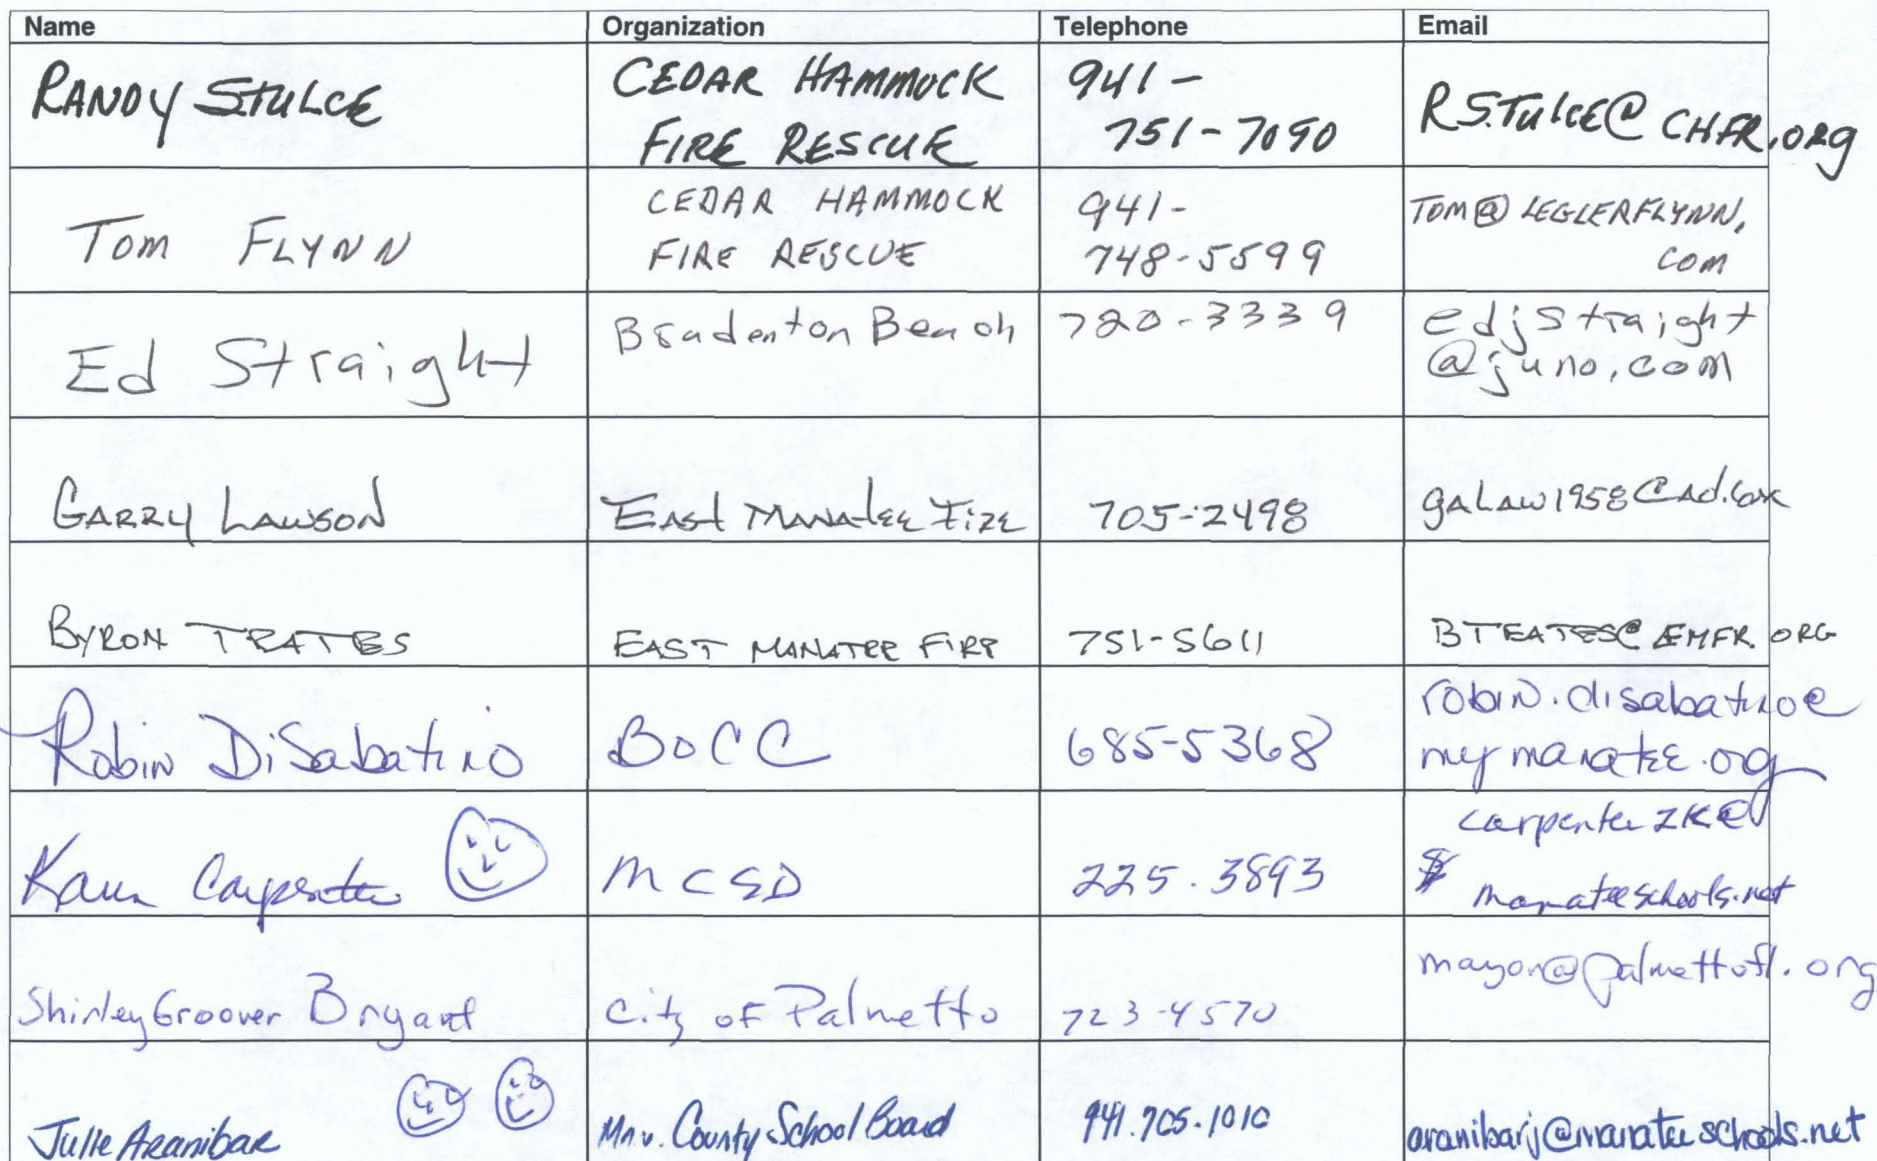 Name Organization Telephone Email
RANDY STULCE CEDAR HAMMOCK FIRE RESCUE 941-751-7090 RSTulce@CHFR.org
TOM FLYNN CEDAR HAMMOCK FIRE RESCUE 941-748-5599 TOM@LEGLERFLYNN.COM
Ed Straight Bradenton Beach 720-3339 edjstraight@juno.com
GARRY LAWSON EAST MANATEE FIRE 705-2498 gaLaw1958@
BYRON TEATES EAST MANATEE FIRE 751-5611 BTEATES@EMFR.ORG
Robin DiSabatino BOCC 685-5368 robin.disabatino@mymanatee.org
Karen Carpenter MCSD 225.3893 carpenter2K@manateeschools.net
Shirley Groover Bryant City of Palmetto 723-4570 mayor@palmettofl.org
Julie Aranibar County School Board 941.705.1010 aranibarj@manateeschools.net